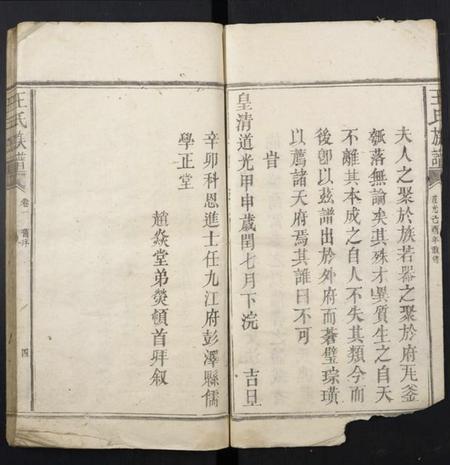 王氏族譜
道光己酉年敦睦
夫人之聚於族若器之聚於府旡釜
瓠落無論矣其殊才異質生之自天
不離其本成之自人不失其類今而
後卽以玆譜出於外府而蒼璧琮璜
以薦諸天府焉其誰曰不可
旹
皇清道光甲申歲閏七月下浣 吉旦
辛卯科恩進士任九江府彭澤縣儒
學正堂
趙焱堂弟熒頓首拜叙
王氏族譜
卷一 舊序
四